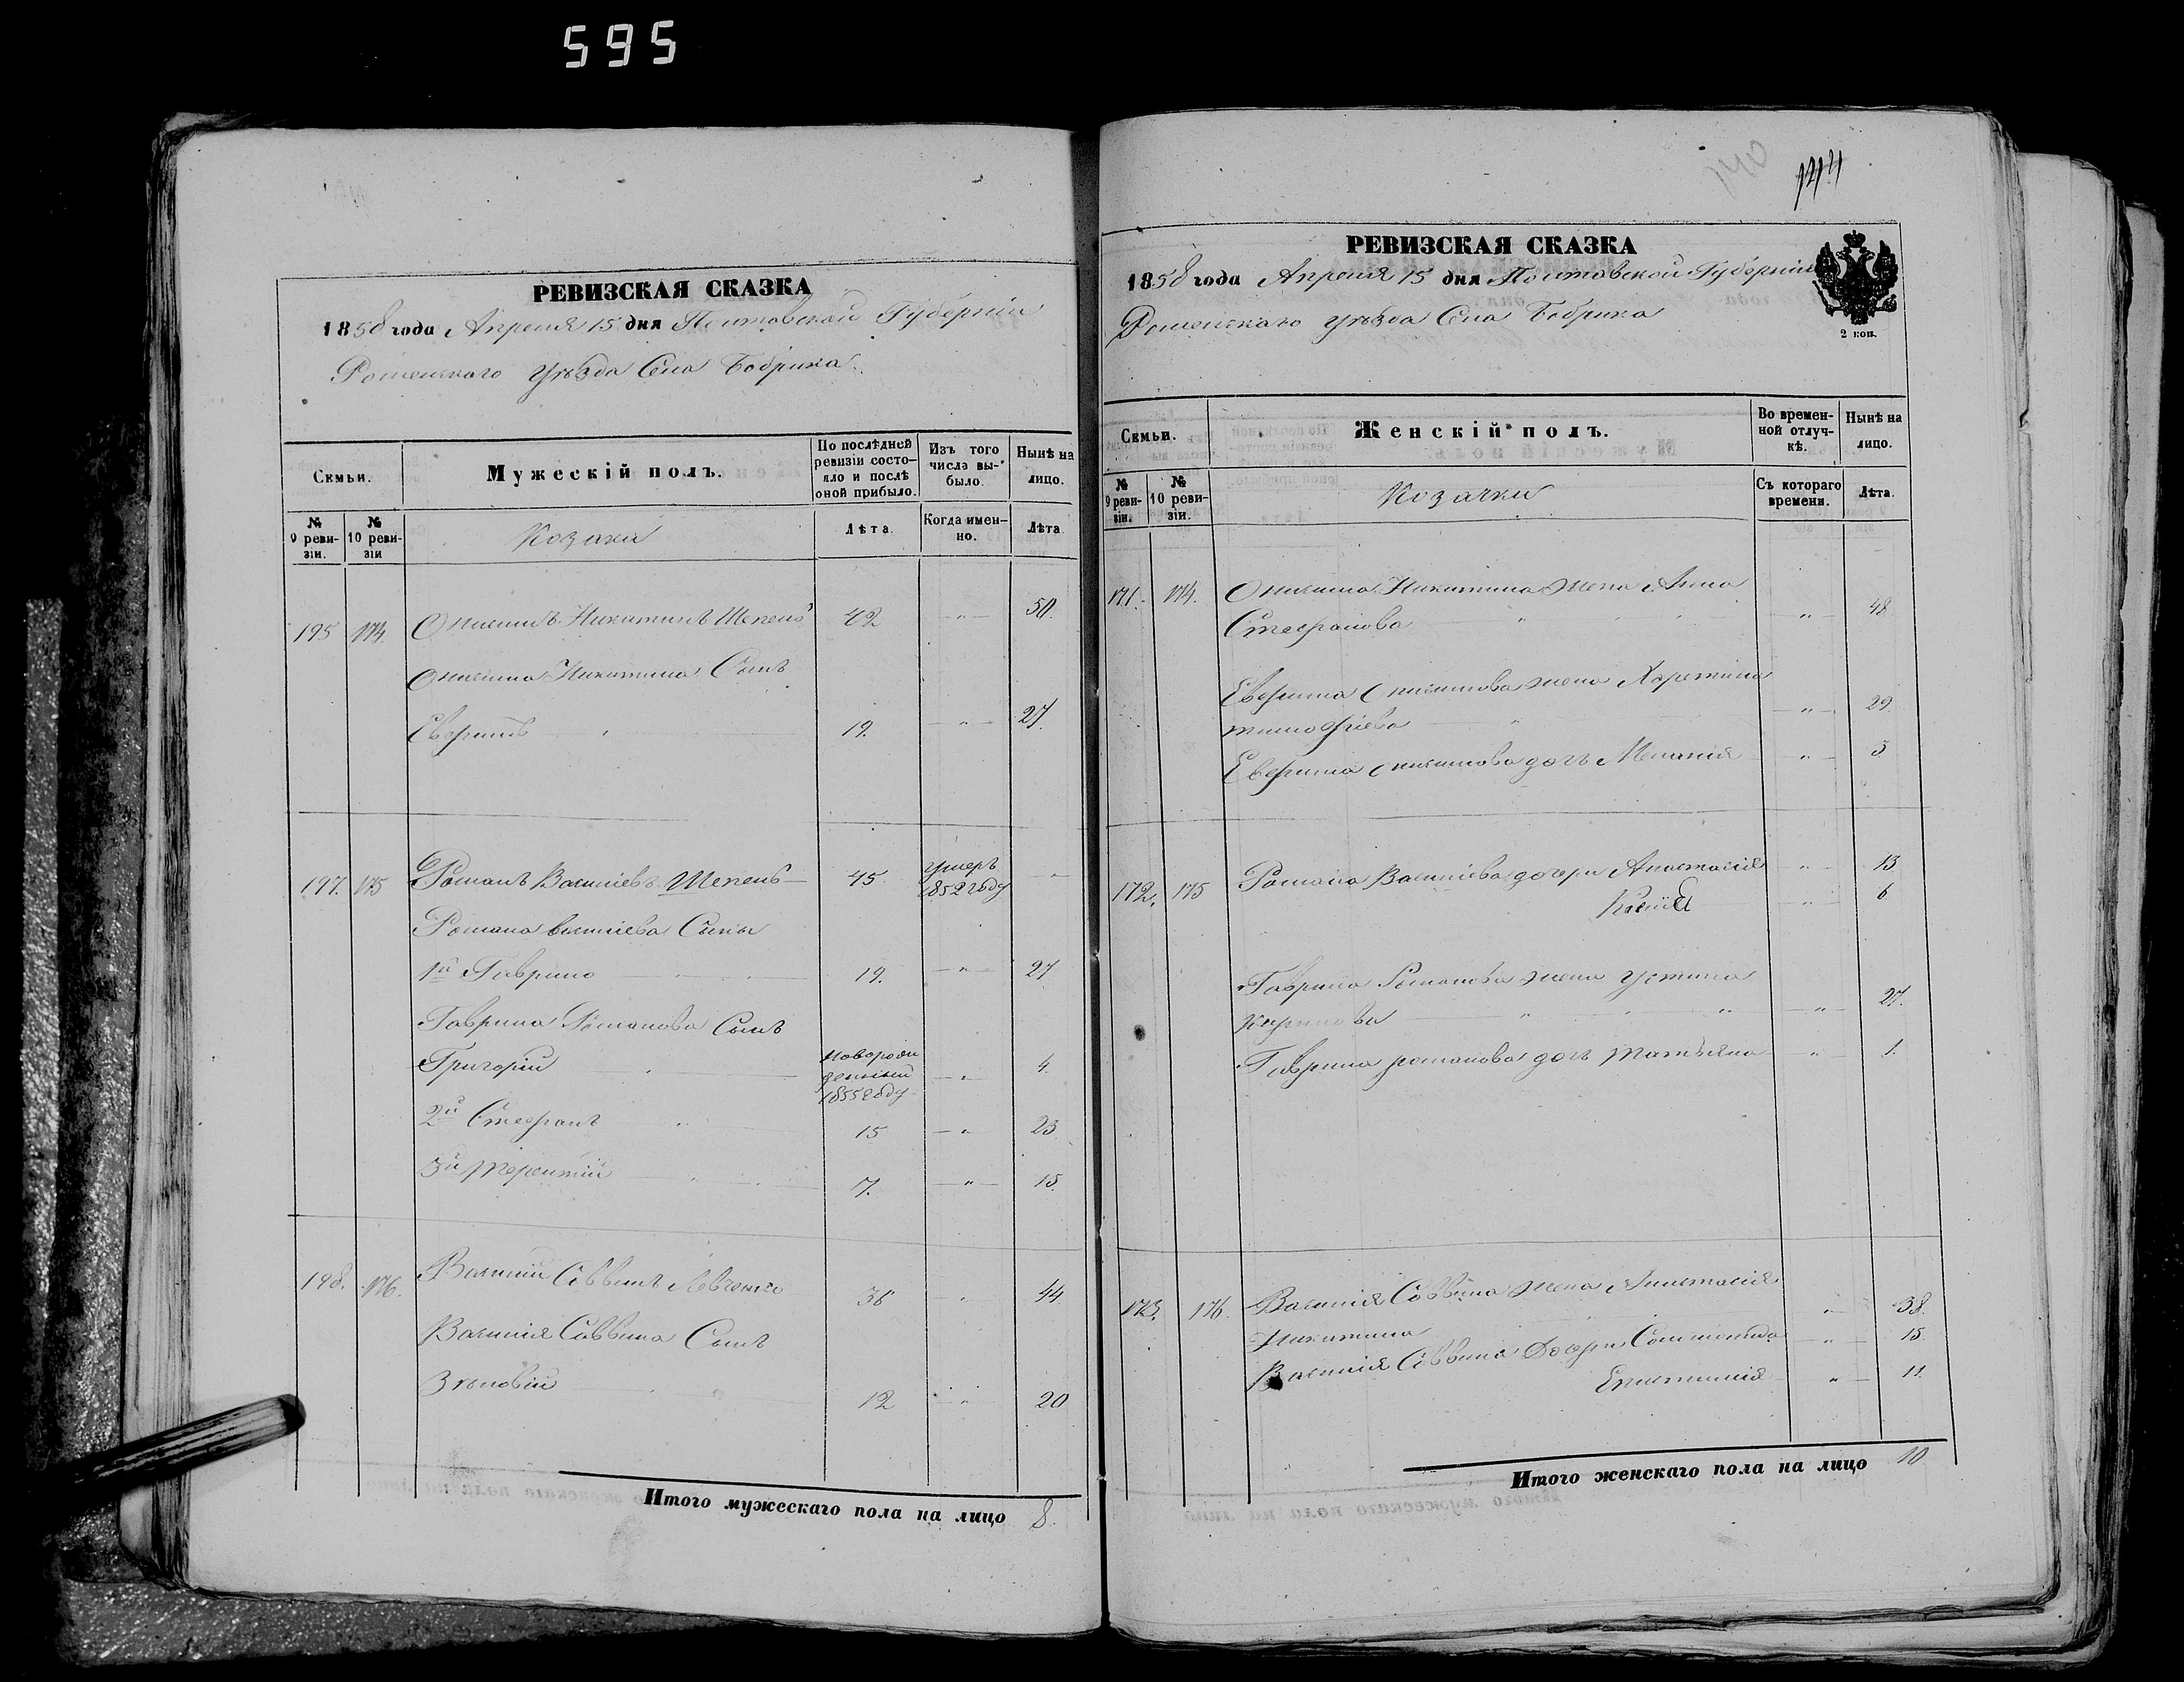 595
РЕВИЗСКАЯ СКАЗКА
1858 года Апреля 15 дня Полтавской Губерніи
Роменскаго Уѣзда Села Бобрика
Семьи.
Мужескій полъ.
По послѣдней ревизіи состояло и послѣ оной прибыло.
Изъ того числа выбыло.
Нынѣ на лицо.
№ 9 ревизіи.
№ 10 ревизіи
Козаки
Лѣта
Когда именно.
Лѣта
195 174. Онисимъ Никитинъ Шепель 42 " 50.
Онисима Никитина Сынъ
Евфимъ 19. " 27.
197. 175 Романъ Васильевъ Шепель 45 умеръ 1852 году "
Романа Василіева Сыны
1й Гаврило 19. " 27
Гаврила Романова Сынъ
Григорій новорожденный 1855 году " 4.
2й Стефанъ 15 " 23
3й Терентій 7. " 15.
198. 176. Василій Саввинъ Левченко 36 " 44.
Василія Саввина Сынъ
Зѣновій 12 " 20
Итого мужескаго пола на лицо 8.
140
144
РЕВИЗСКАЯ СКАЗКА
1858 года Апреля 15 дня Полтавской Губерніи
Роменскаго Уѣзда Села Бобрика
2 коп.
Семьи.
Женскій полъ.
Во временной отлучкѣ.
Нынѣ на лицо.
№ 9 ревизіи.
№ 10 ревизіи.
Козачки
Съ котораго времени.
Лѣта.
171. 174. Онисима Никитина жена Анна
Стефанова " " 48.
Евфима Онисимова жена Харитина
тимофіева " " 29.
Евфима Онисимова дочь Меланія " 3
172. 175 Романа Василіева дочери Анастасія " 13
Ксенія " 6
Гаврила Романова жена Устина
" " 27.
Гаврила романова дочь Татьяна " 1.
173. 176. Василія Саввина жена Анастасія
Никитина " 38.
Василія Саввина Дочери Соломонида " 15.
Епистимія " 11.
Итого женскаго пола на лицо 10